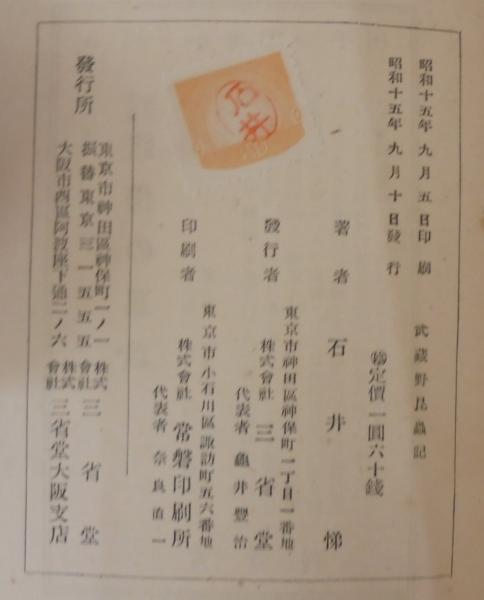 武藏野昆蟲記
昭和十五年九月五日印刷
昭和十五年九月十日發行
定價一圓六十錢
著者 石井悌
東京市神田區神保町一丁目一番地
發行者 株式會社 三省堂
代表者 龜井豐治
東京市小石川區諏訪町五六番地
印刷者 株式會社 常磐印刷所
代表者 奈良直一
石井
發行所
東京市神田區神保町一ノ一 株式會社 三省堂
振替東京三一五五五
大阪市西區阿波座下通二ノ六 株式會社 三省堂大阪支店